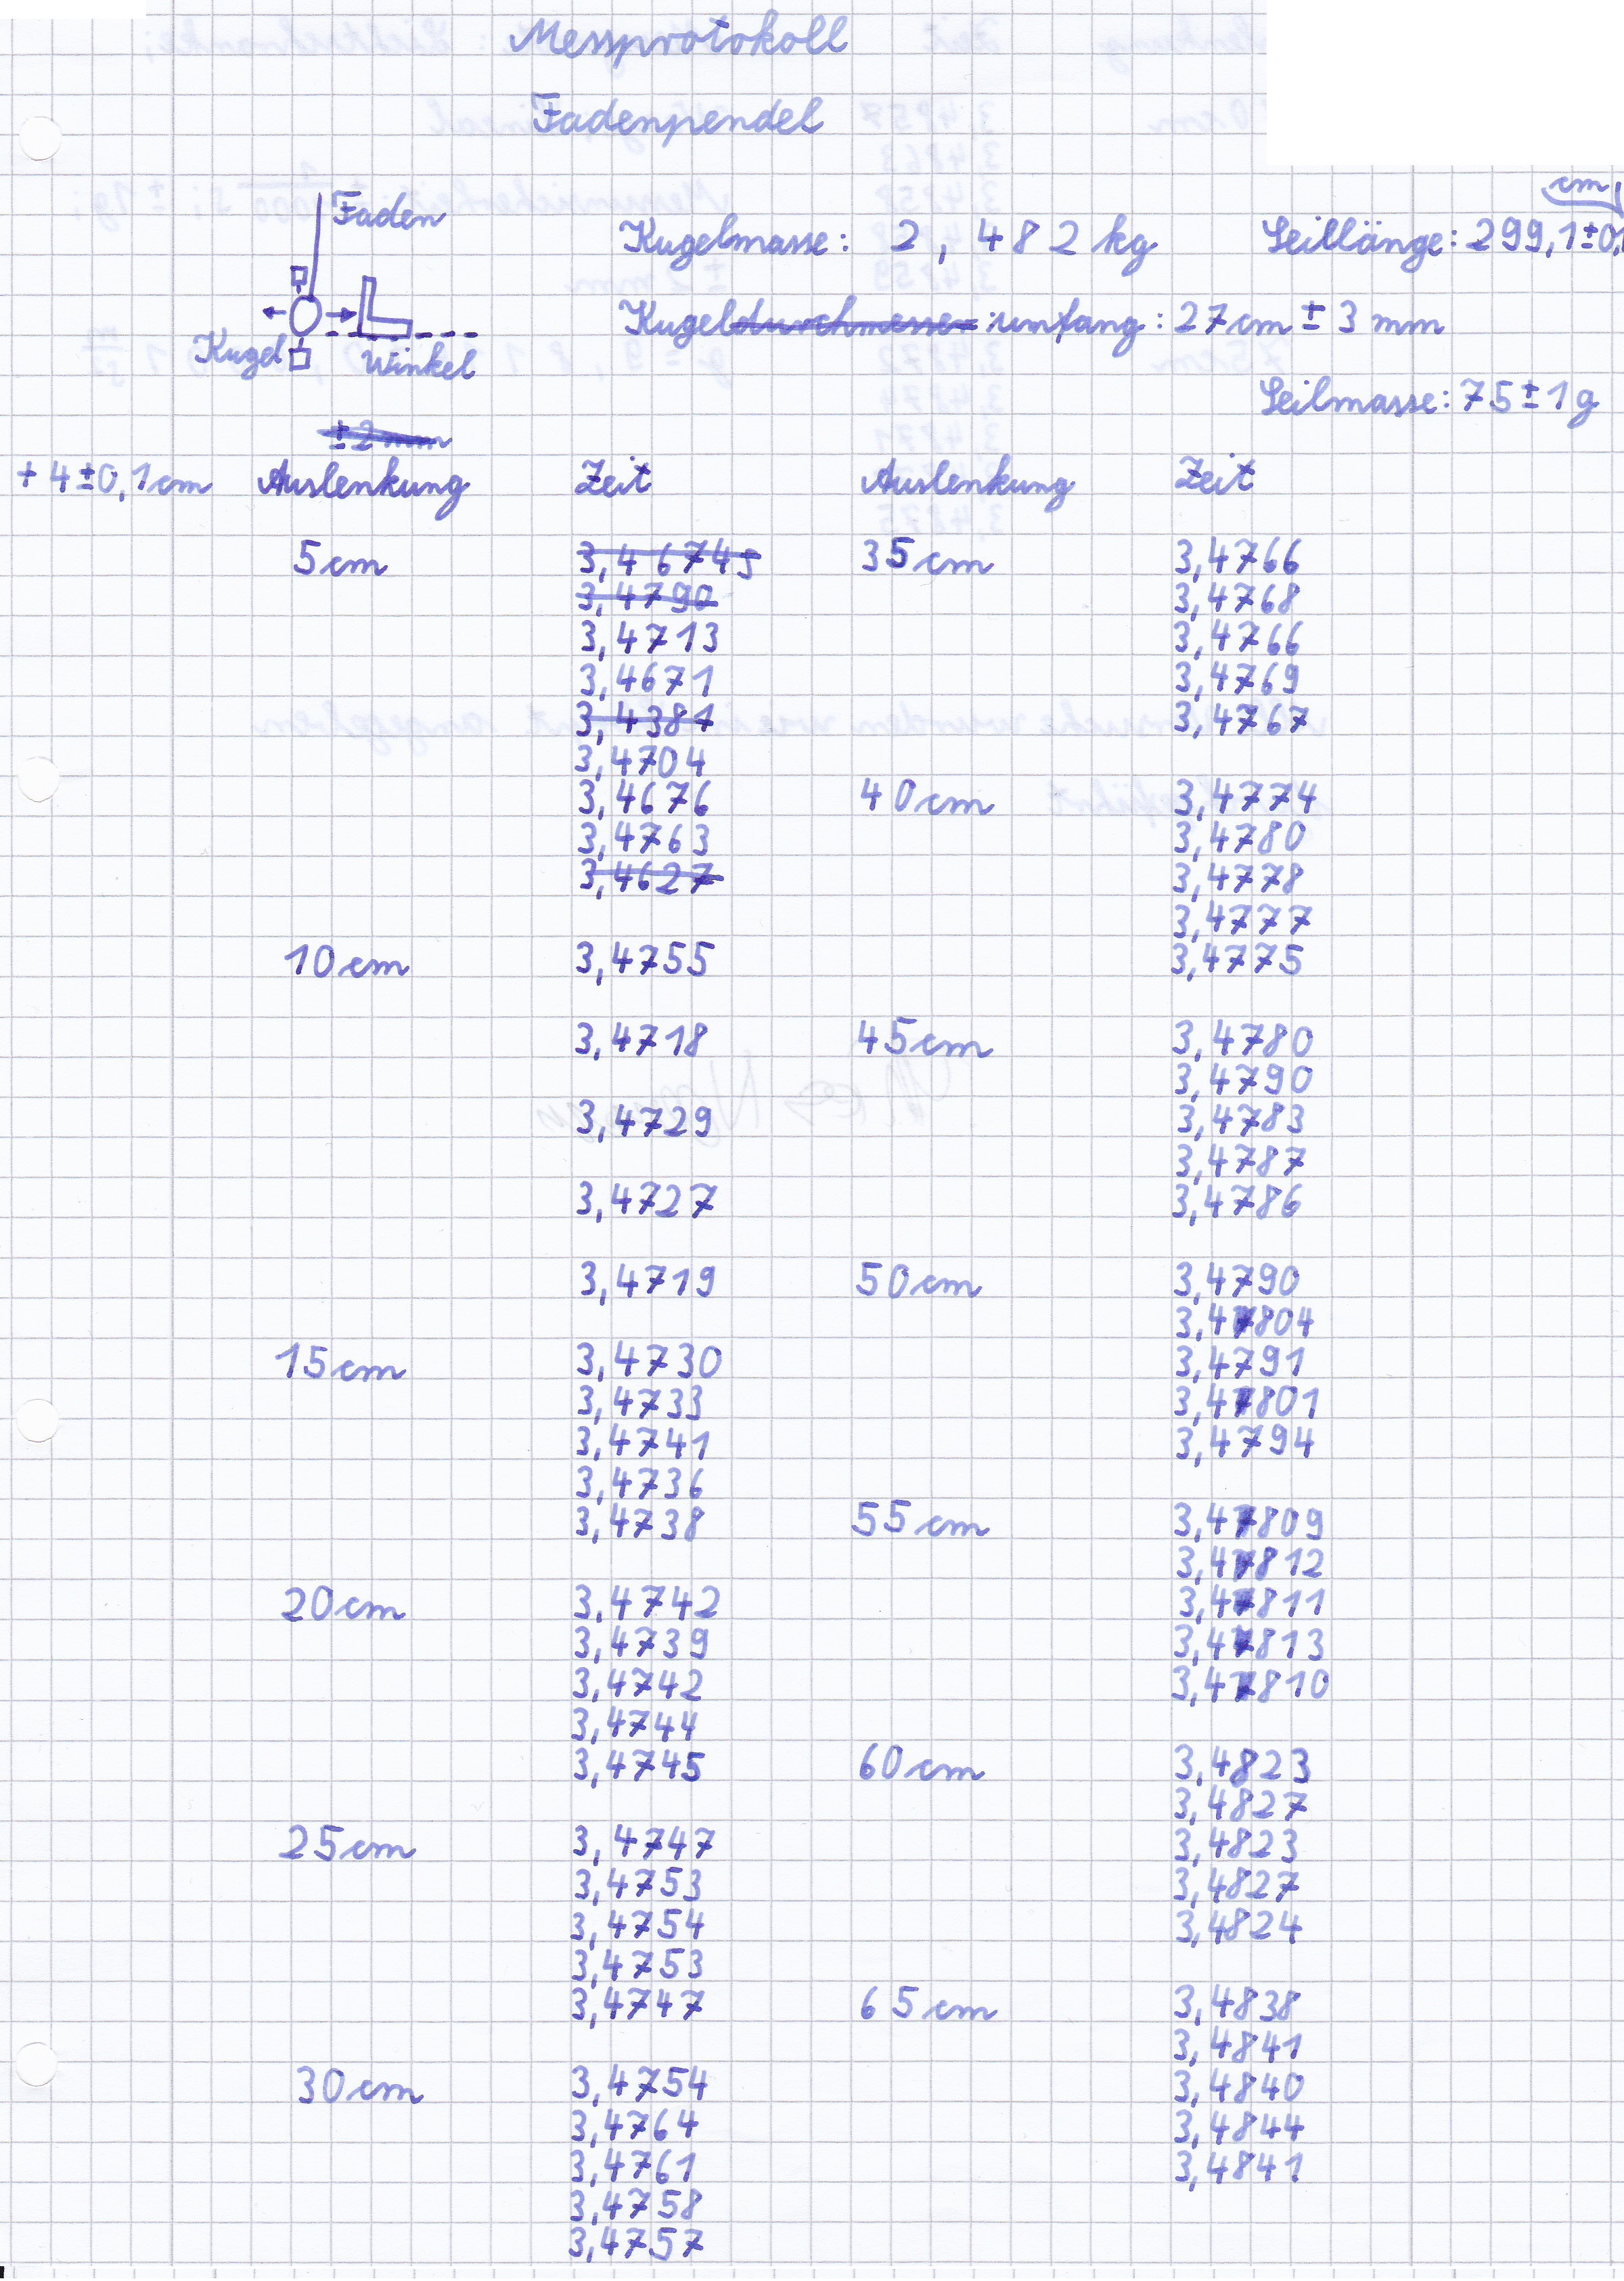 Messprotokoll
Fadenpendel
Faden
Kugel
Winkel
Kugelmasse: 2,482 kg
Seillänge: 299,1±0,1
cm
Kugeldurchmesser: umfang: 27cm ± 3 mm
Seilmasse: 75±1g
±2mm
+4±0,1cm Auslenkung Zeit Auslenkung Zeit
5cm 3,4674s 35cm 3,4766
3,4790 3,4768
3,4713 3,4766
3,4671 3,4769
3,4381 3,4767
3,4704
3,4676 40cm 3,4774
3,4763 3,4780
3,4627 3,4778
3,4777
10cm 3,4755 3,4775
3,4718 45cm 3,4780
3,4790
3,4729 3,4783
3,4787
3,4727 3,4786
3,4719 50cm 3,4790
3,4804
15cm 3,4730 3,4791
3,4733 3,4801
3,4741 3,4794
3,4736
3,4738 55cm 3,4809
3,4812
20cm 3,4742 3,4811
3,4739 3,4813
3,4742 3,4810
3,4744
3,4745 60cm 3,4823
3,4827
25cm 3,4747 3,4823
3,4753 3,4827
3,4754 3,4824
3,4753
3,4747 65cm 3,4838
3,4841
30cm 3,4754 3,4840
3,4764 3,4844
3,4761 3,4841
3,4758
3,4757